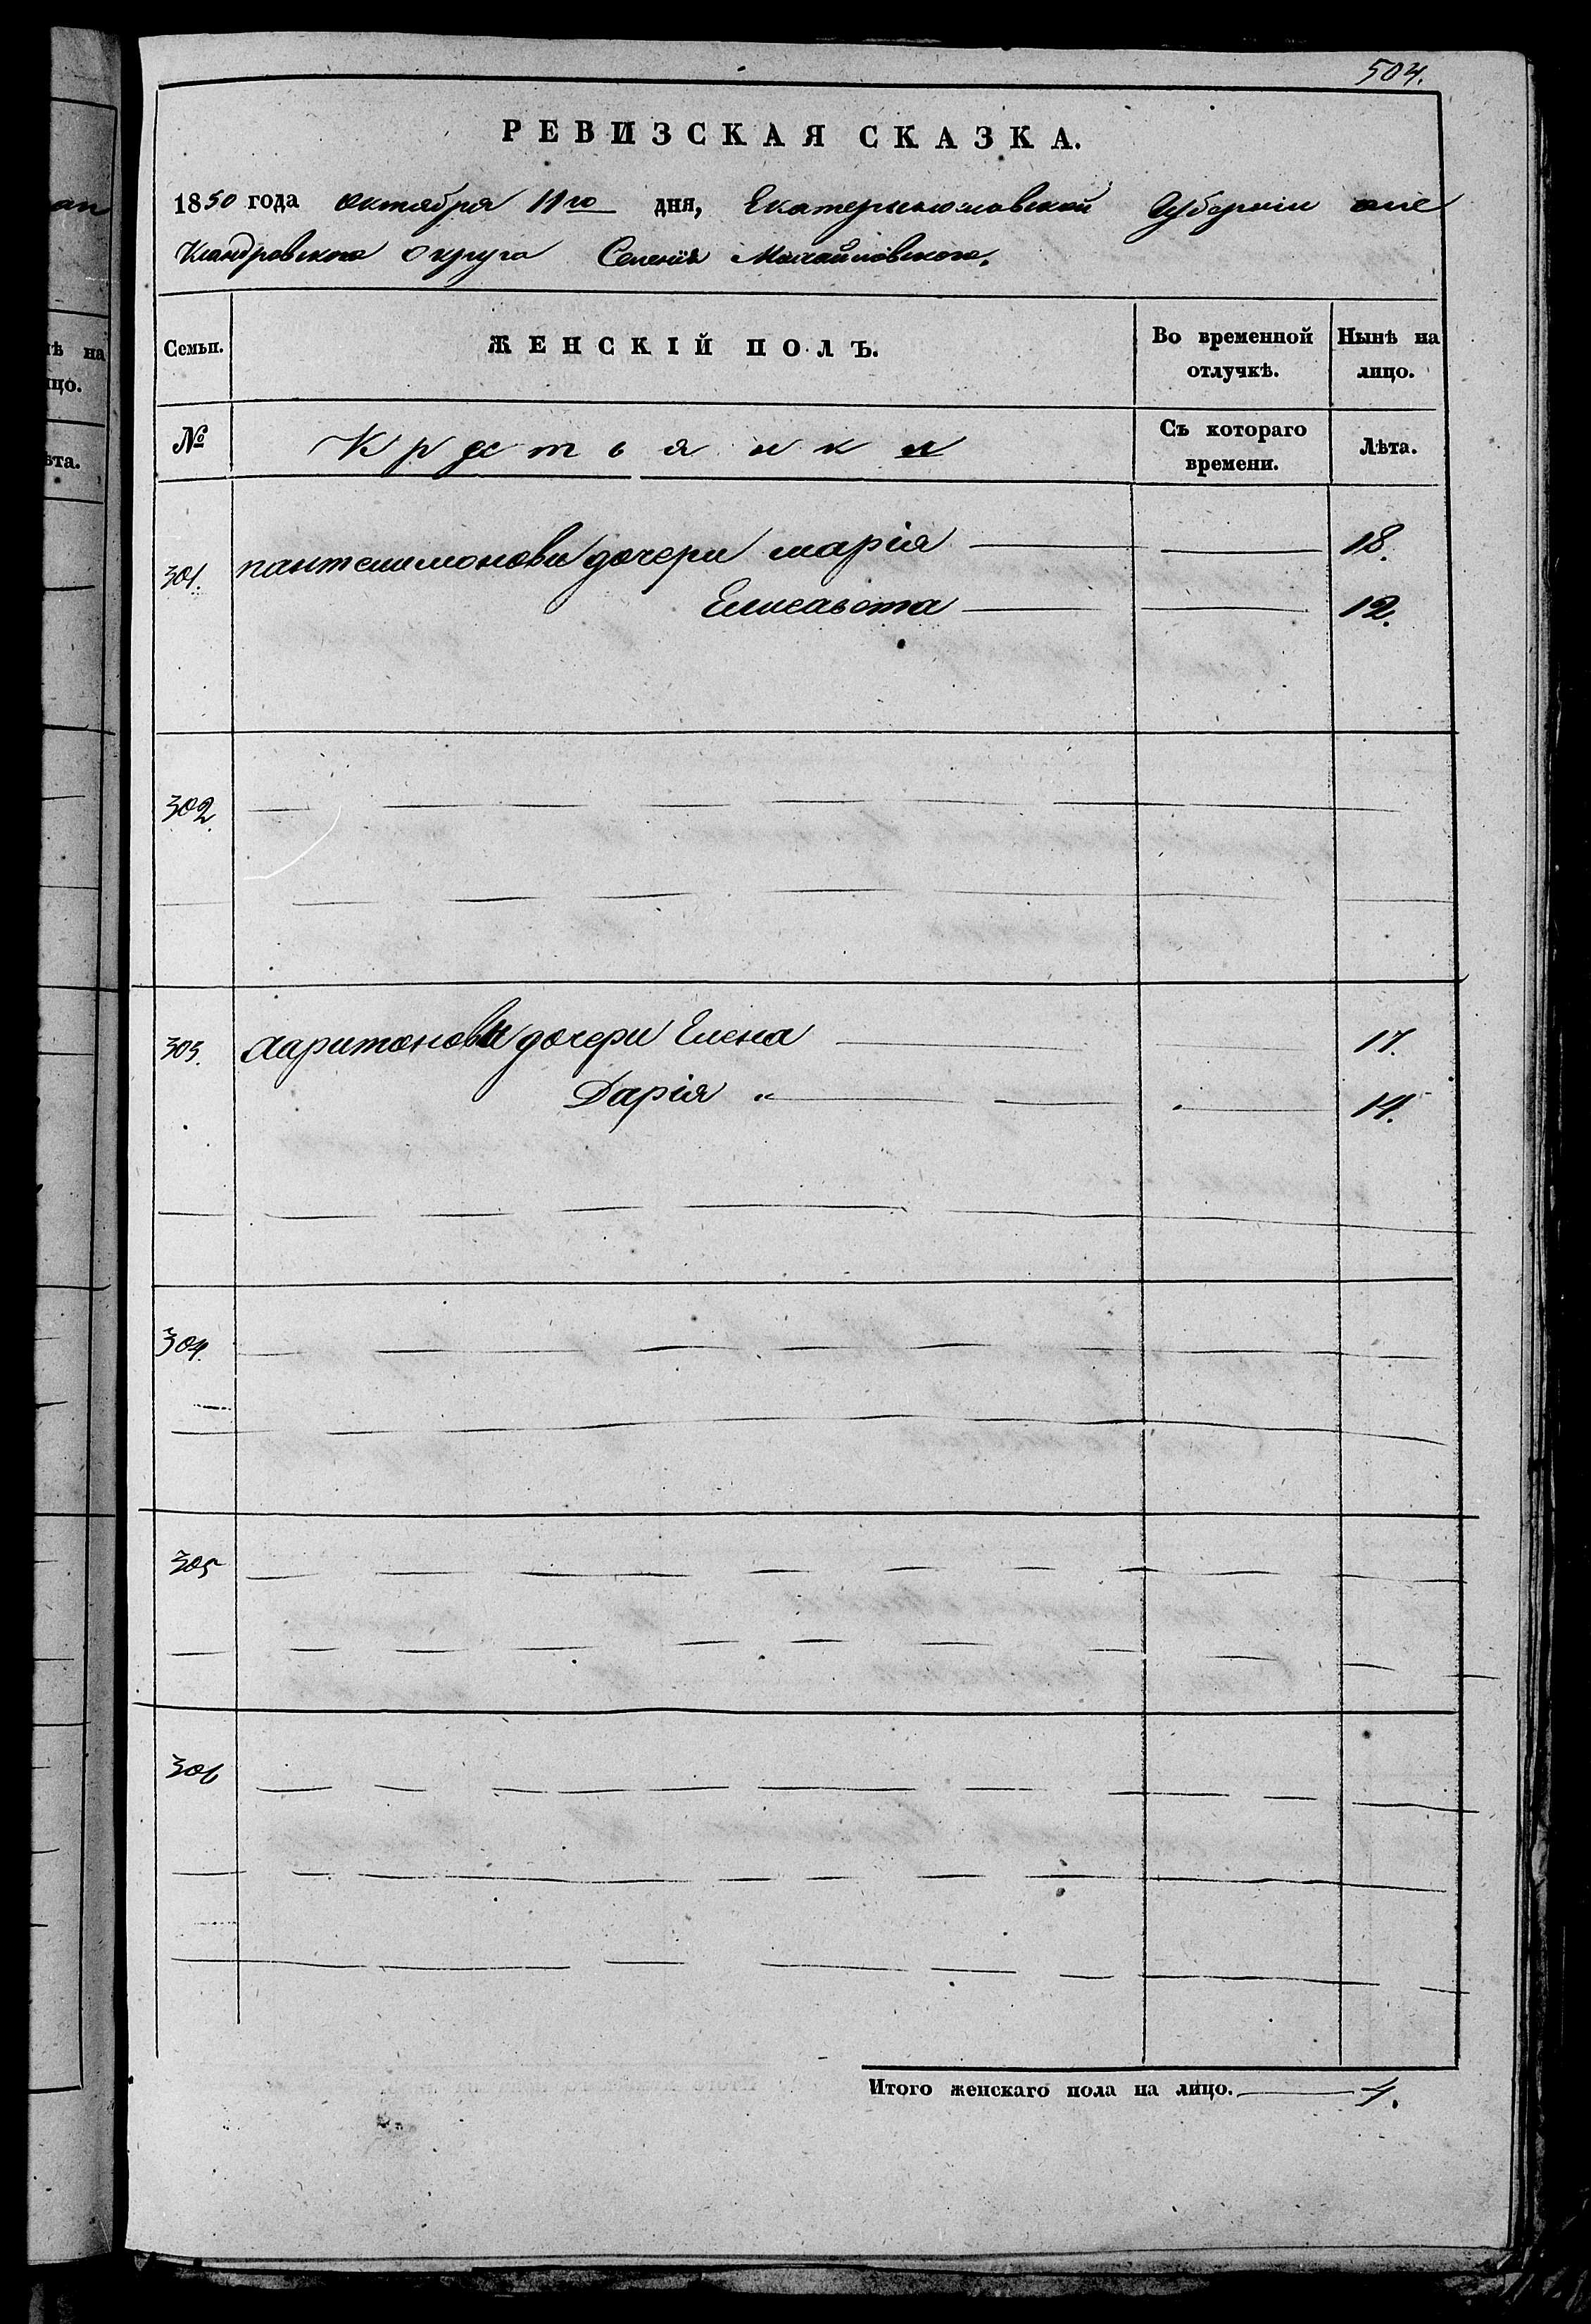 504.
РЕВИЗСКАЯ СКАЗКА.
1850 года октября 11го дня, Екатеринославской Губерніи але
ксандровскаго округа Селенія Михайловскаго.
Семьи. ЖЕНСКІЙ ПОЛЪ. Во временной отлучкѣ. Нынѣ на лицо.
№ Крестьянки Съ котораго времени. Лѣта.
301. пантелимоновы дочери марія 18.
Елисавета 12.
302.
303. Харитоновы дочери Елена 17.
Дарія 14.
304.
305
306
Итого женскаго пола на лицо. 4.